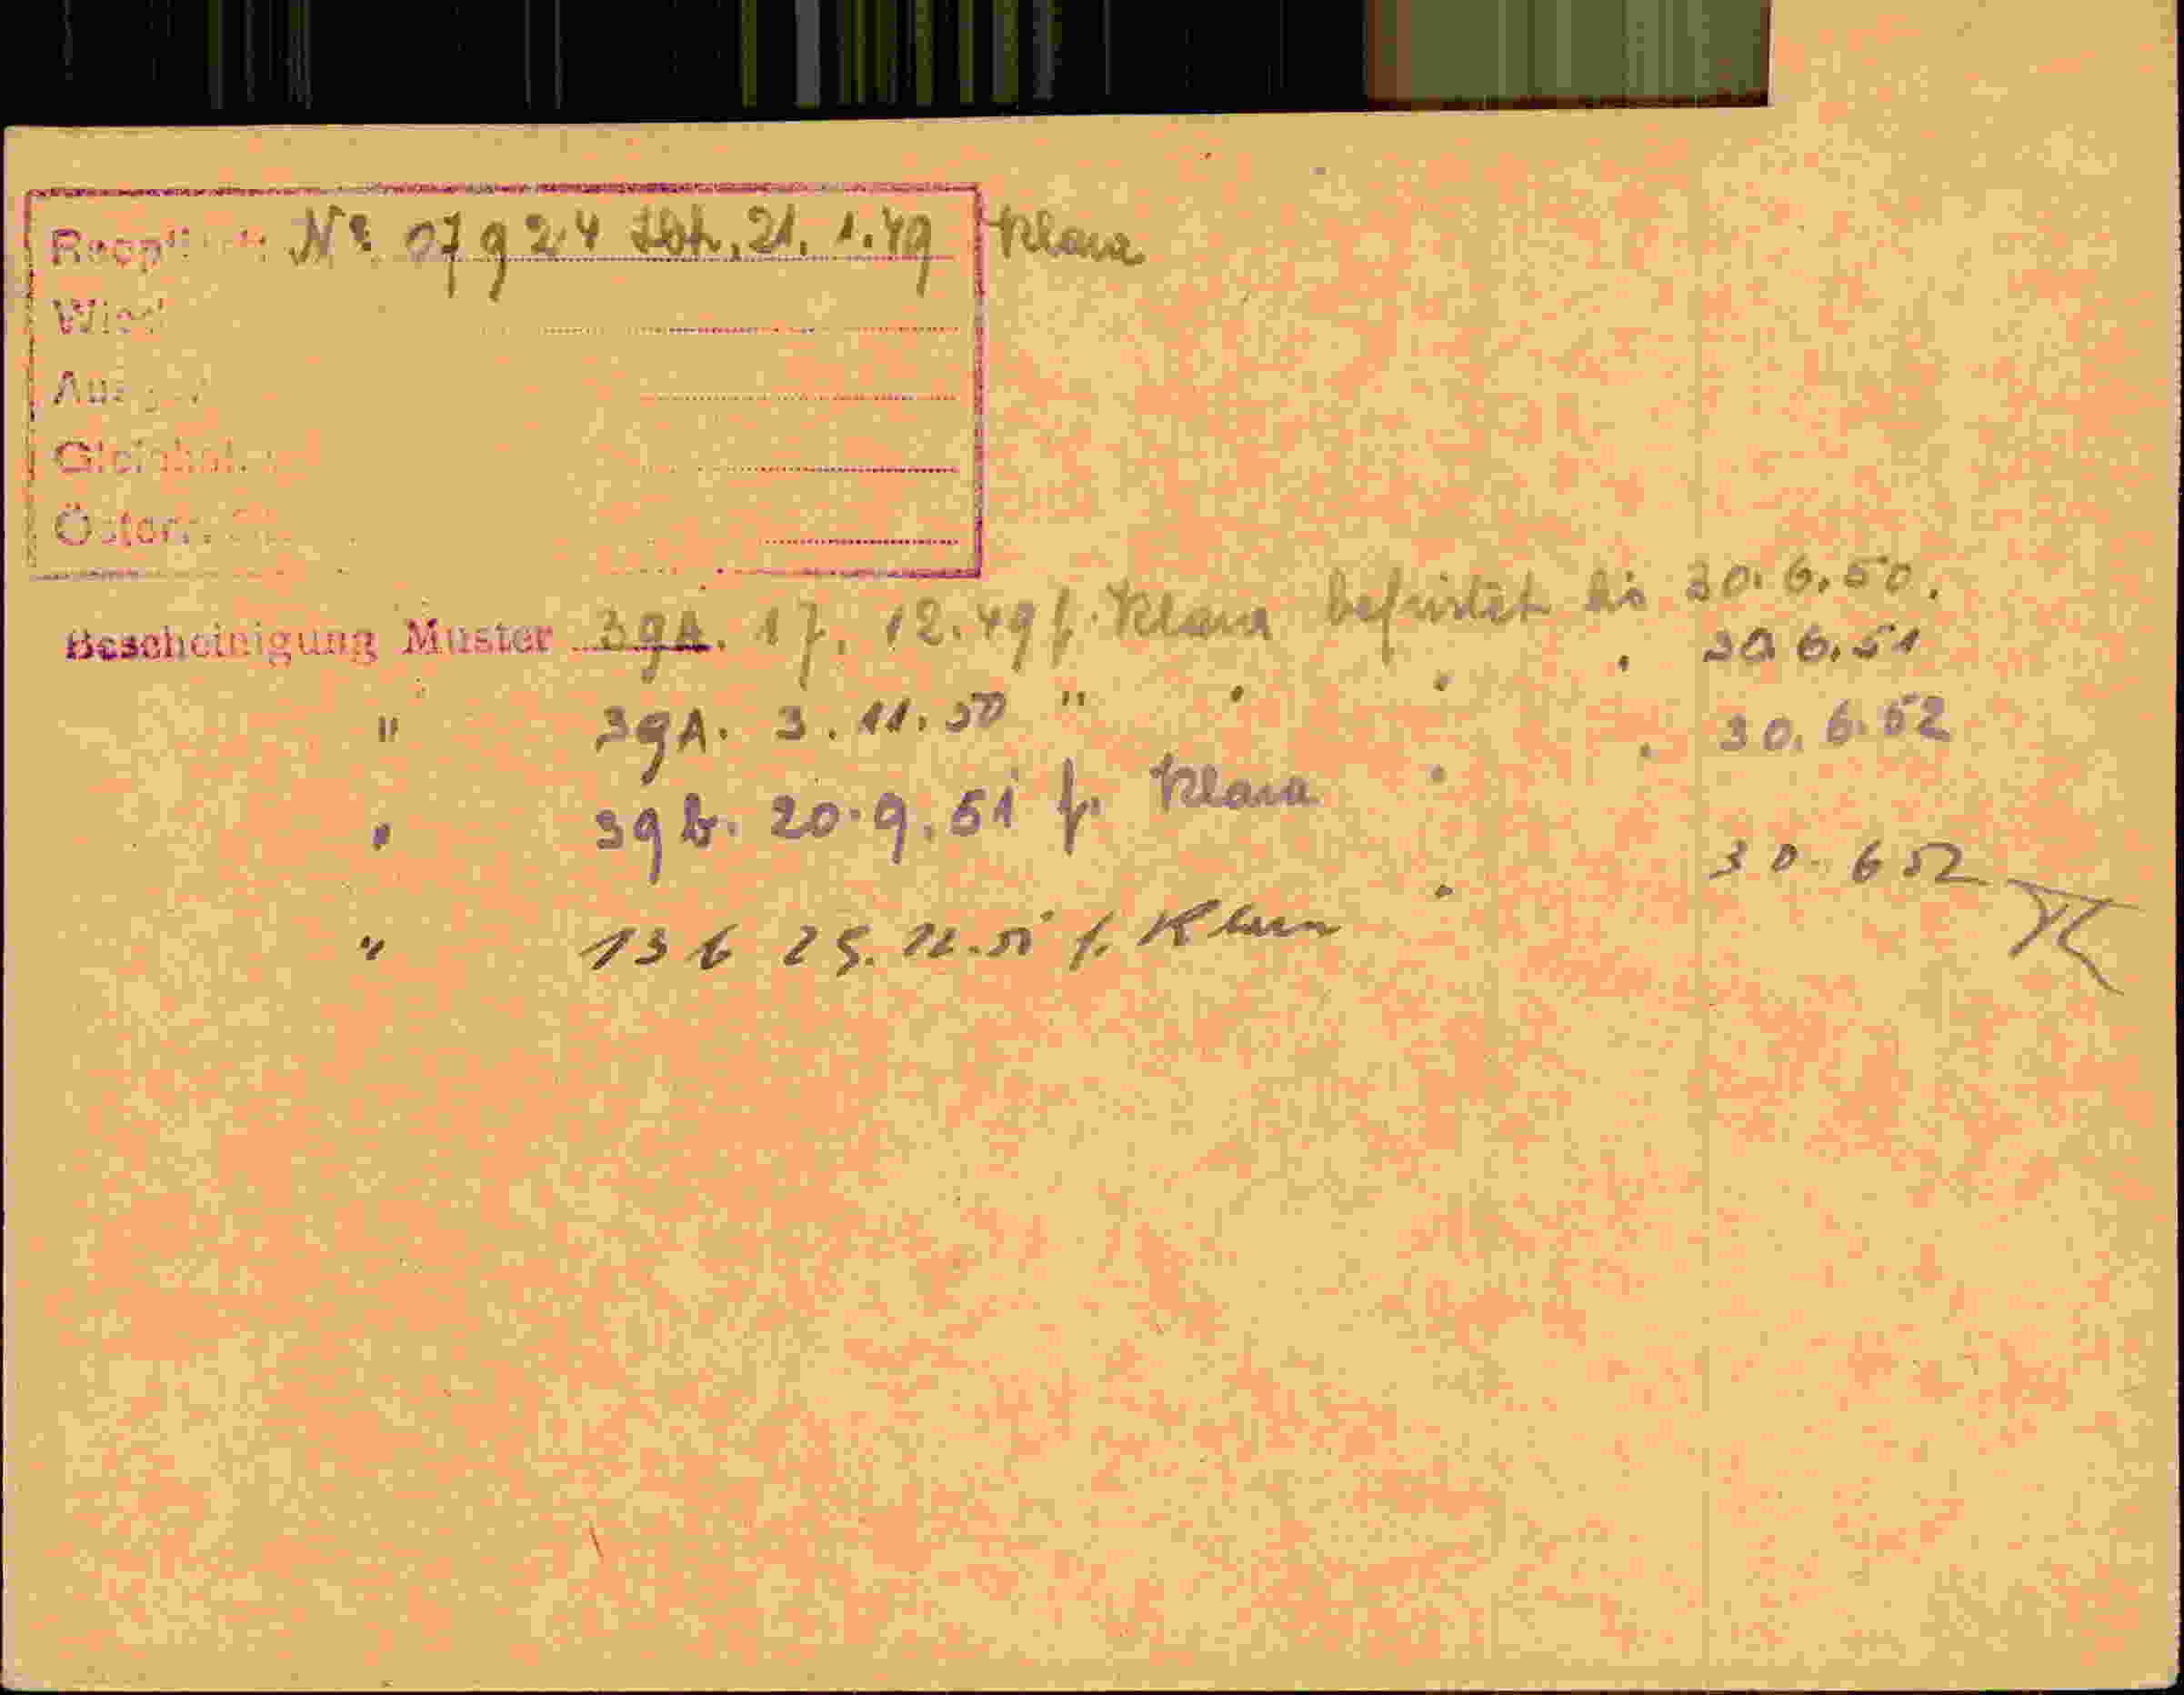 Nº 07924 21. 1. 49 Klara
Bescheinigung Muster 39A. 17. 12. 49 f. Klara befristet bis 30. 6. 50.
" 39A. 3. 11. 50 " " " " 30. 6. 51
" 39 b. 20. 9. 51 f. Klara " " 30. 6. 52
" 13 b 25. 12. 51 f. Klara " 30. 6 52